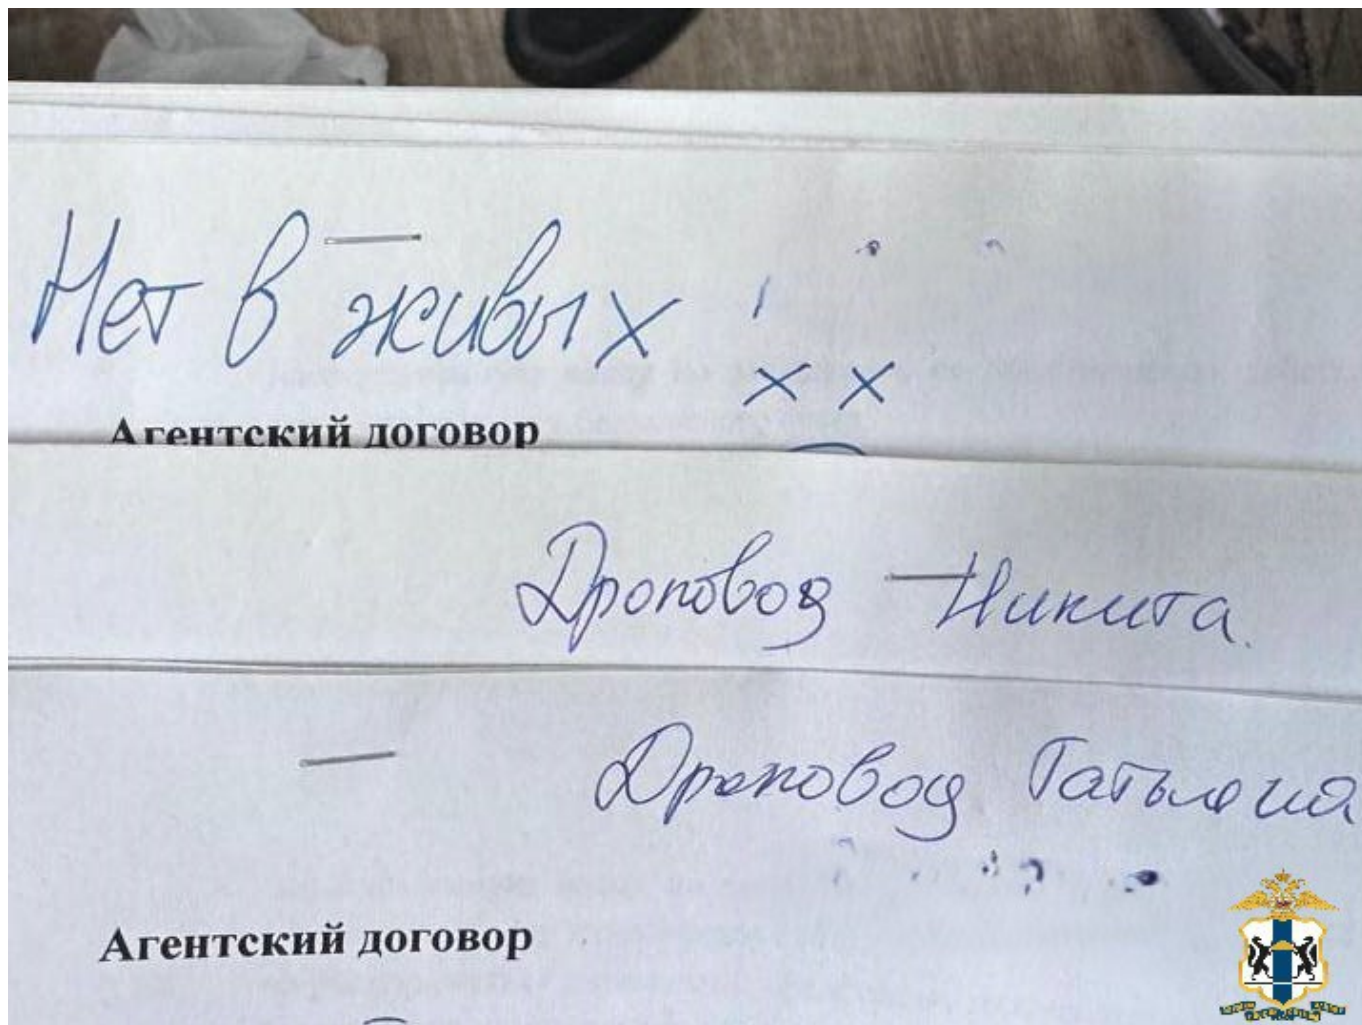 Нет в живых
х х
Агентский договор
Дроповод Никита.
Дроповод Татьяна
Агентский договор